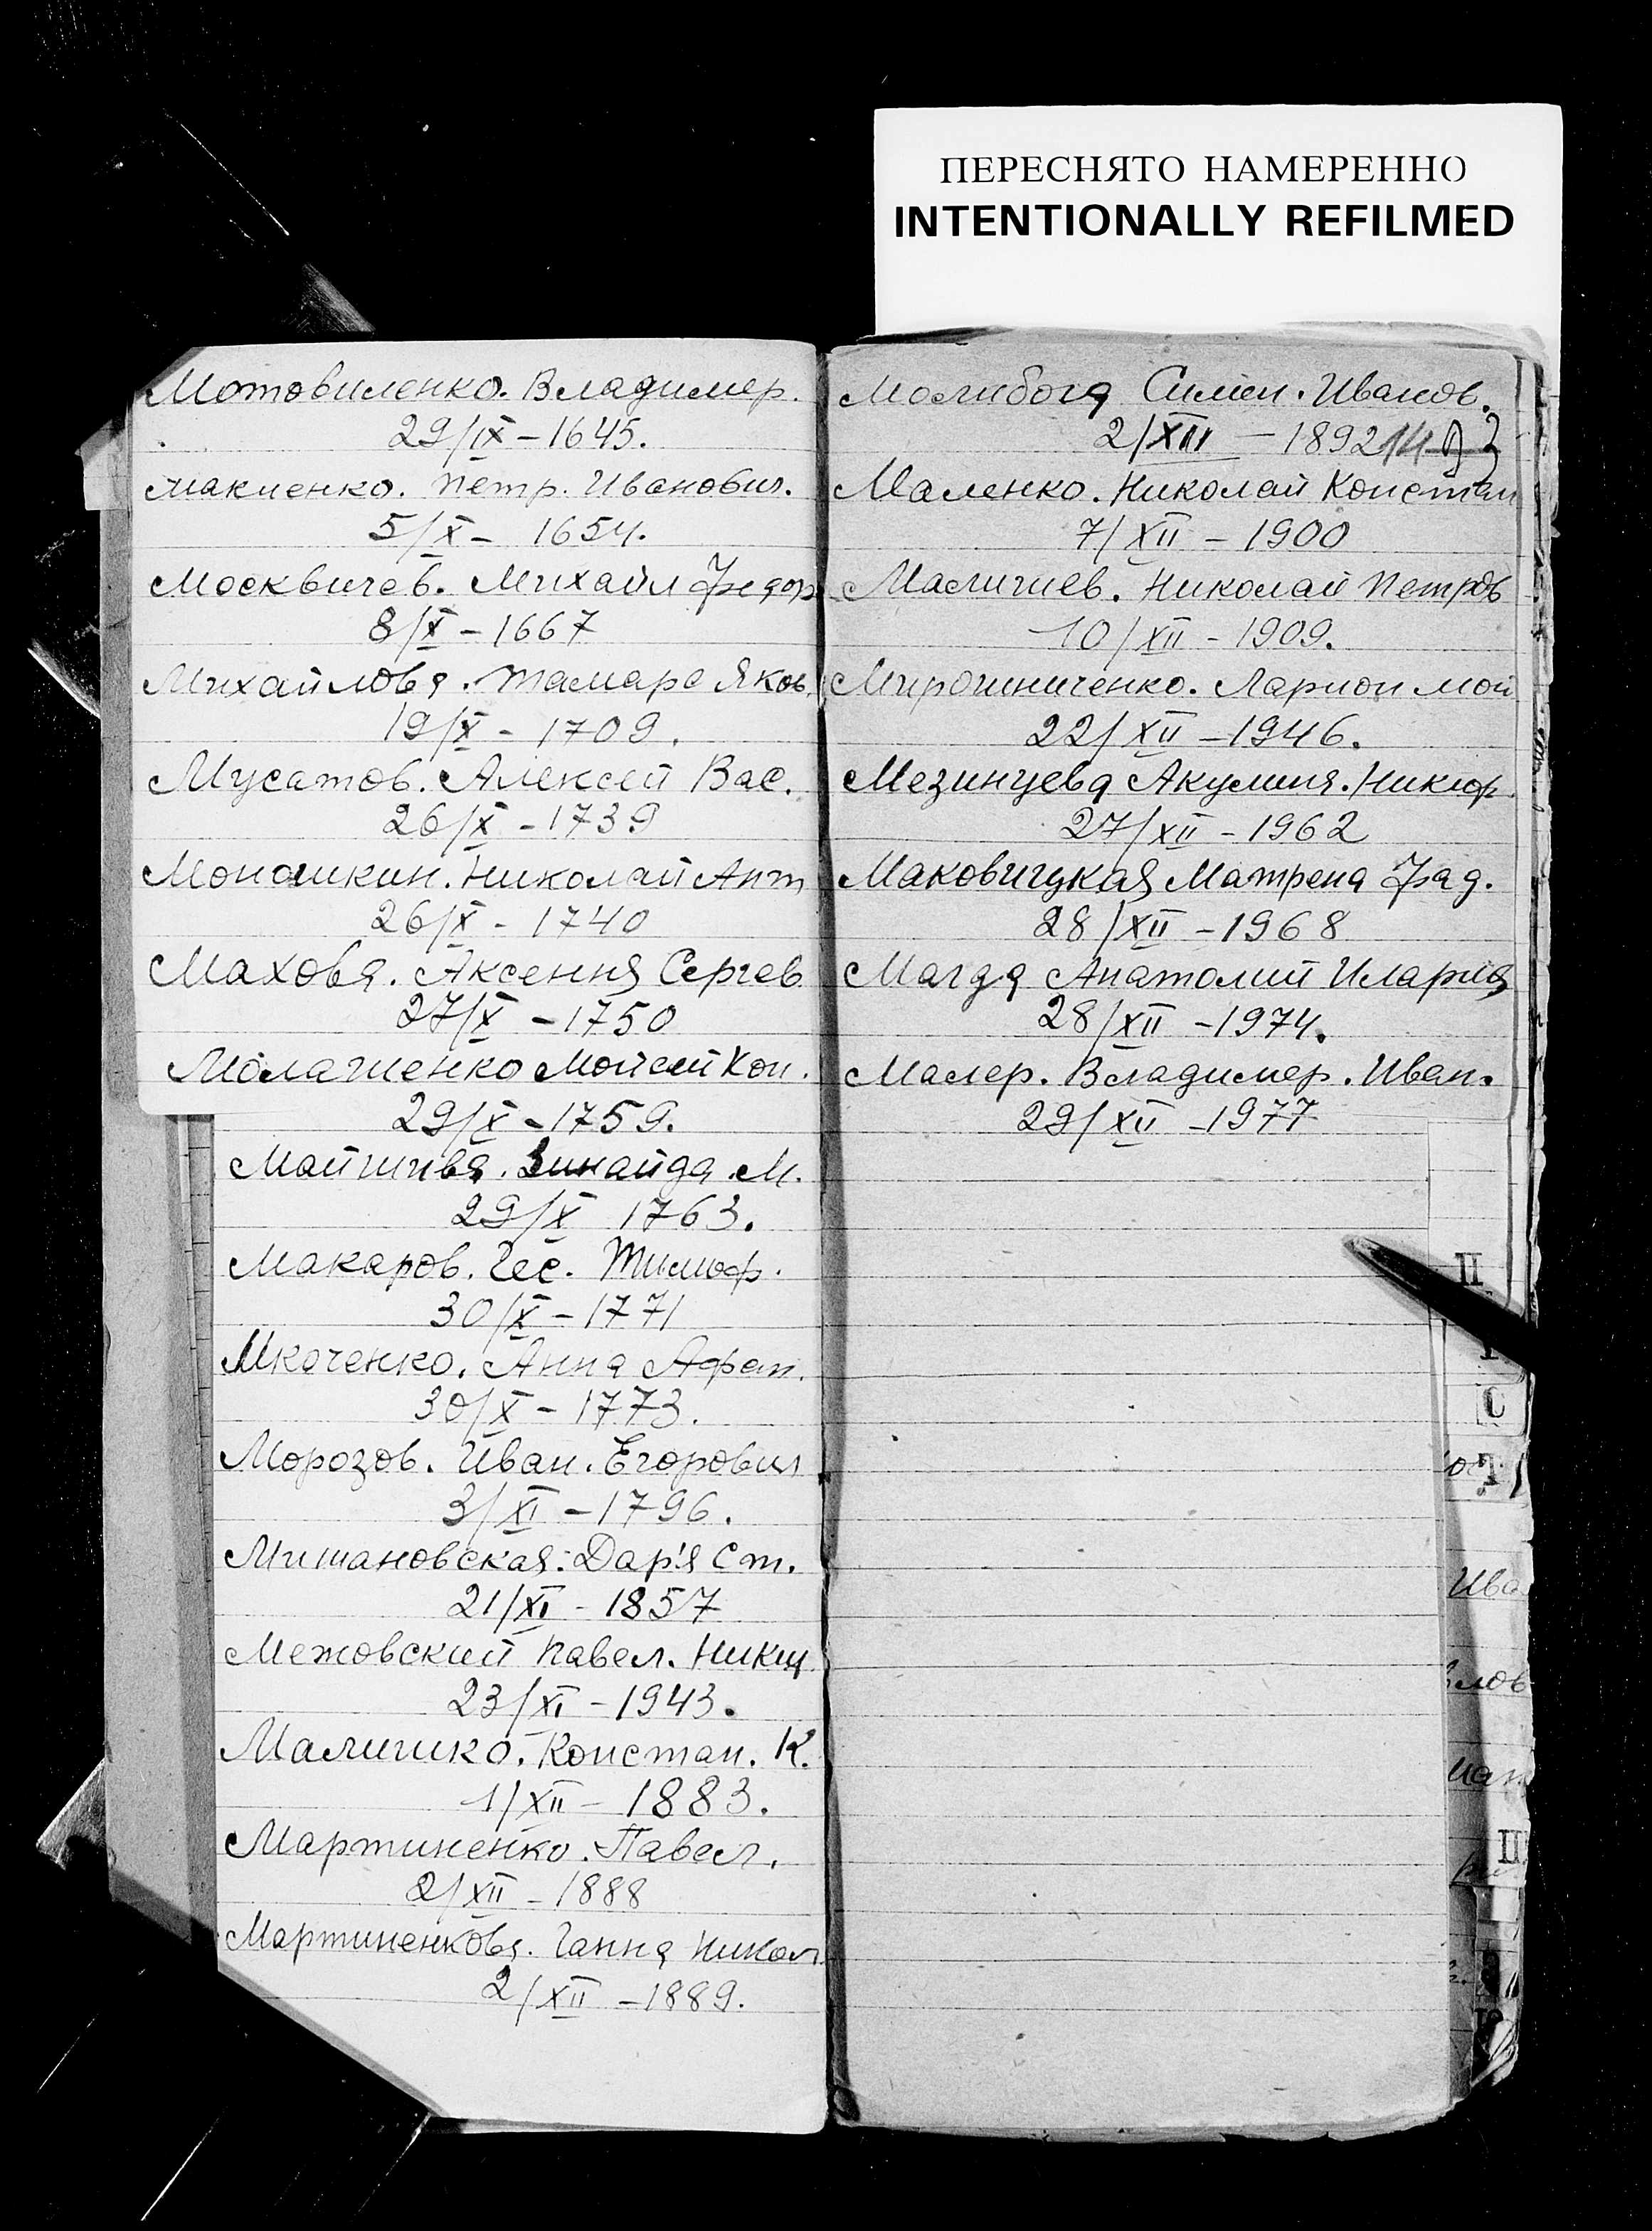 ПЕРЕСНЯТО НАМЕРЕННО
INTENTIONALLY REFILMED
Мотовиленко. Владимер.
29/IX – 1645.
Макиенко. Петр. Иванович.
5/X – 1654.
Москвичев. Михайл Федор
8/X – 1667
Михайлова. Тамара Яков.
19/X – 1709.
Мусатов. Алексей Вас.
26/X – 1739
Моношкин. Николай Ант
26/X – 1740
Махова. Аксення Сергев
27/X – 1750
Малашенко Мойсей Кон.
29/X – 1759.
Зинайда М.
29/X 1763.
Макаров. Тимоф.
30/X – 1771
Мкоченко. Анна Афан.
30/X – 1773.
Морозов. Иван. Егорович
3/XI – 1796.
Мишановская. Дар'я Ст.
21/XI – 1857
Межовский Павел. Никит
23/XI – 1943.
Малишко. Констан. К.
1/XII – 1883.
Мартиненко. Павел.
2/XII – 1888
Мартиненкова. Ганна Никол
2/XII – 1889.
Молибога Симен. Иванов.
2/XII – 1892
Маленко. Николай Констан
7/XII – 1900
Малишев. Николай Петров
10/XII – 1909.
Мирошниченко. Ларион Мой
22/XII – 1946.
Мезинцева Акулина. Никиф.
27/XII – 1962
Маковицкая Матрена Фад.
28/XII – 1968
Магда Анатолий Илария
28/XII – 1974.
Малер. Владимер. Иван.
29/XII – 1977
П
С
Т
Ива